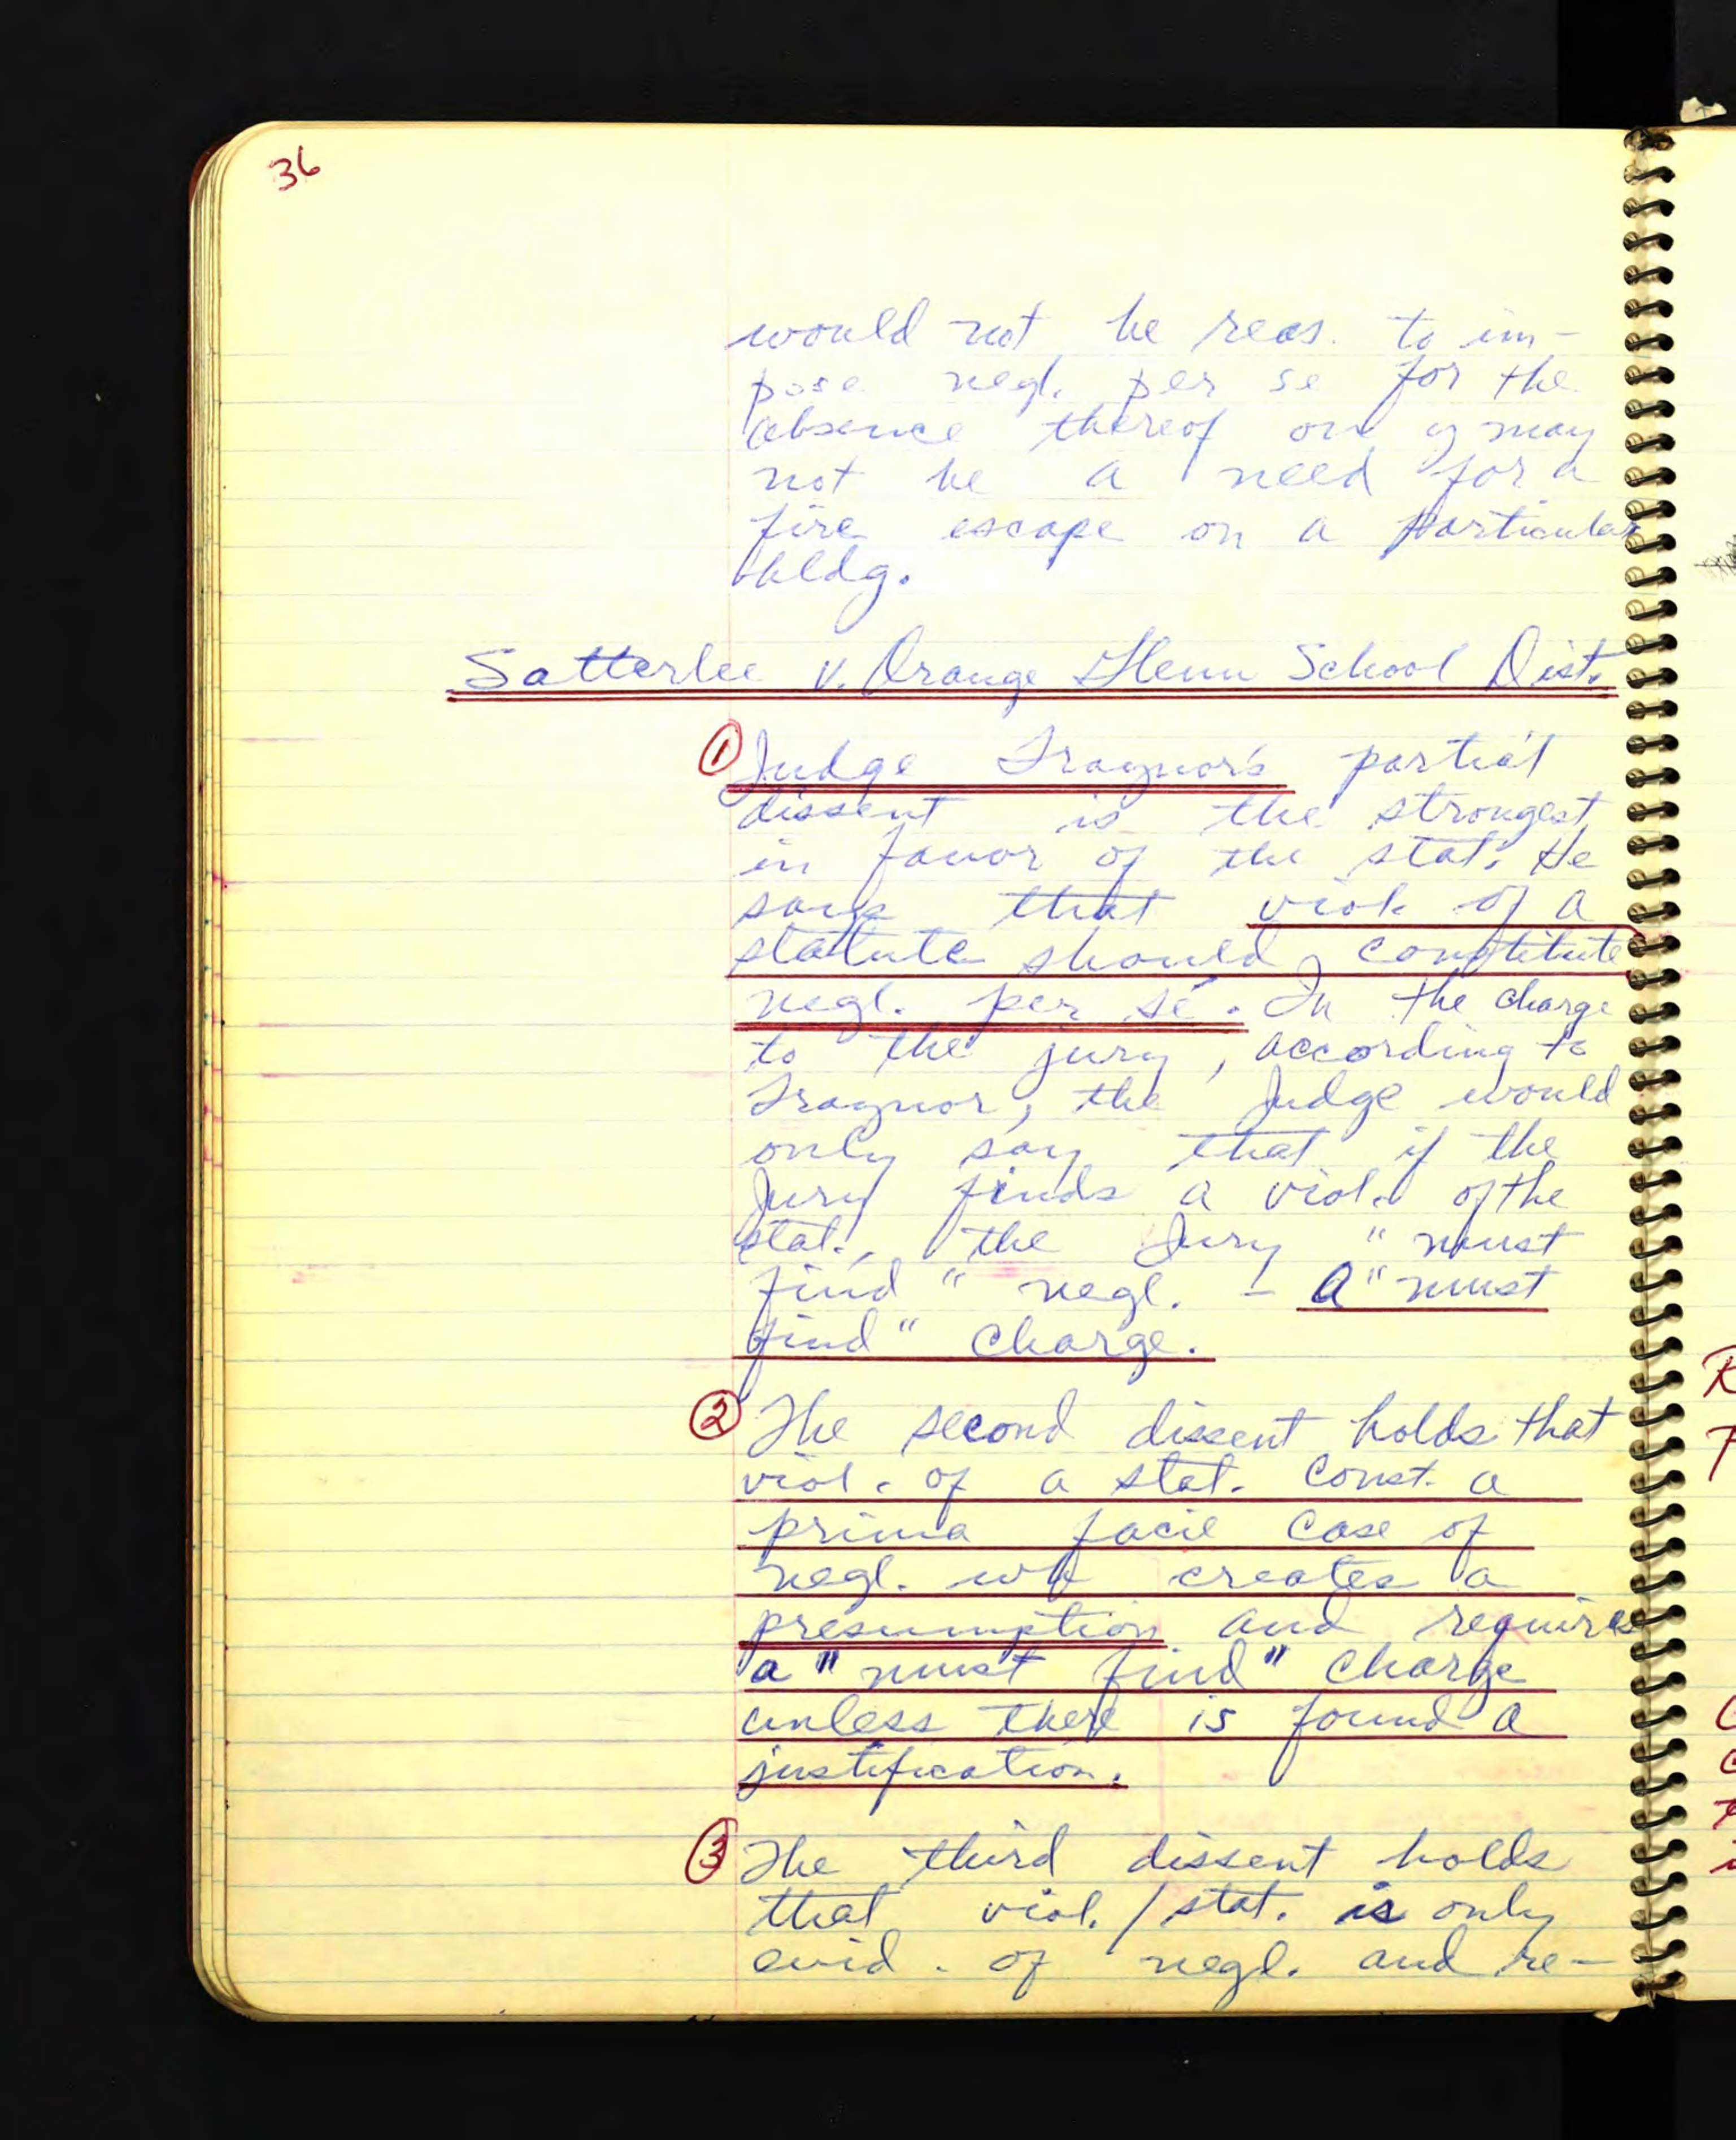 36
would not be reas. to im-
pose negl. per se for the
absence thereof
not be a need for a
fire escape on a particular
bldg.
Satterlee v. Orange Glenn School Dist.
① Judge Traynor's partial
dissent is the strongest
in favor of the stat. He
says that viol. of a
statute should constitute
negl. per se. In the charge
to the jury, according to
Traynor, the Judge would
only say that if the
Jury finds a viol. of the
stat., the Jury "must
find" negl. - A "must
find" charge.
② The second dissent holds that
viol. of a stat. const. a
prima facie case of
negl. wh creates a
presumption and requires
a "must find" charge
unless there is found a
justification.
③ The third dissent holds
that viol. / stat. is only
evid. of negl. and re-